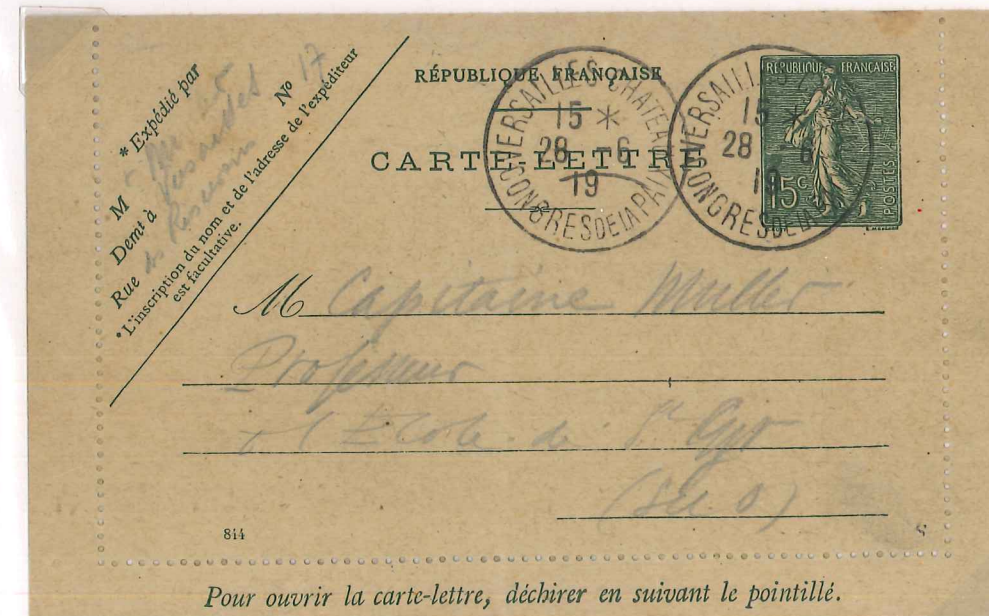 * Expédié par
M
Nº 17
Demt à Versailles
Rue des Réservoirs
*L'inscription du nom et de l'adresse de l'expéditeur
est facultative.
RÉPUBLIQUE FRANÇAISE
CARTE-LETTRE
VERSAILLES CHATEAU
15 *
28 -6
19
CONGRES DE LA PAIX
VERSAILL
15 *
28 -6
19
CONGRES DE LA
RÉPUBLIQUE FRANÇAISE
15c
POSTES
M Capitaine Muller
Professeur
à l'Ecole de St Cyr
(S et O)
844
Pour ouvrir la carte-lettre, déchirer en suivant le pointillé.